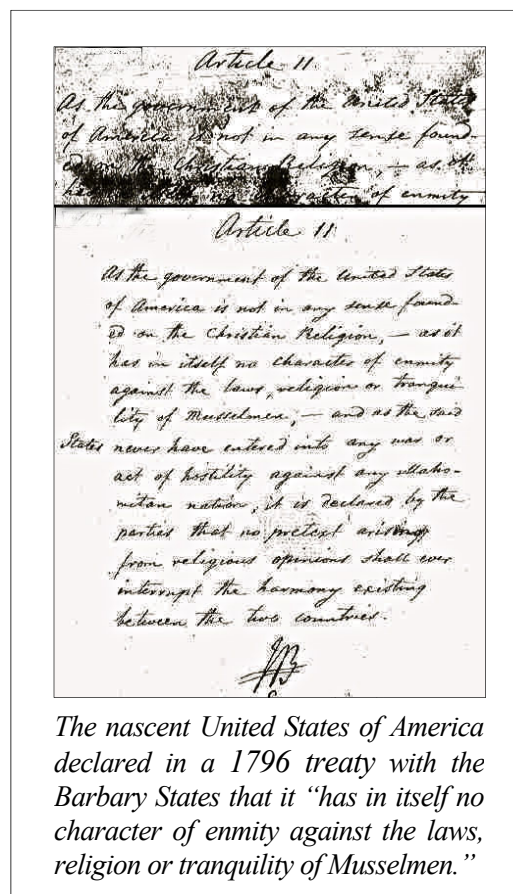 Article 11.
As the government of the United States
of America is not in any sense found-
ed on the Christian Religion, – as it
has of enmity
Article 11.
As the government of the United States
of America is not in any sense found-
ed on the Christian Religion, – as it
has in itself no character of enmity
against the laws, religion or tranqui-
lity of Musselmen, – and as the said
States never have entered into any war or
act of hostility against any Maho-
metan nation, it is declared by the
parties that no pretext arising
from religious opinions shall ever
interrupt the harmony existing
between the two countries.
JB
The nascent United States of America
declared in a 1796 treaty with the
Barbary States that it “has in itself no
character of enmity against the laws,
religion or tranquility of Musselmen.”